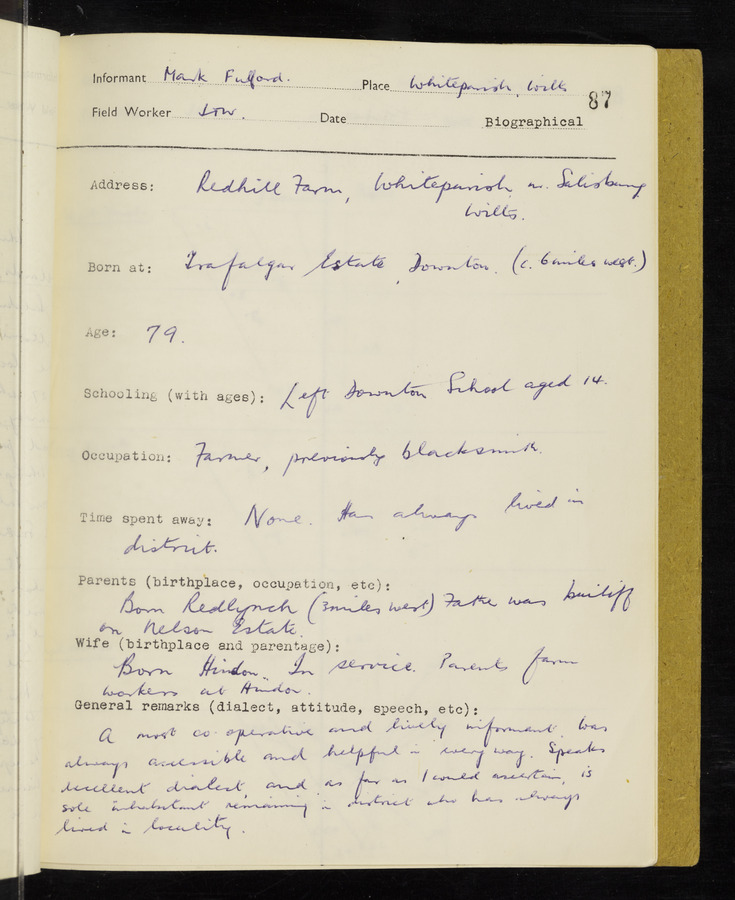 Informant Mark Fulford. Place Whiteparish, Wilts
87
Field Worker Date Biographical
Address: Redhill Farm, Whiteparish, nr. Salisbury
Wilts.
Born at: Trafalgar Estate, Downton. (c. 6 miles west.)
Age: 79.
Schooling (with ages): Left Downton School aged 14.
Occupation: Farmer, previously blacksmith.
Time spent away: None. Has always lived in
district.
Parents (birthplace, occupation, etc):
Born Redlynch (3 miles west) Father was bailiff
on Nelson Estate.
Wife (birthplace and parentage):
Born Hindon. In service. Parents farm
workers at Hindon.
General remarks (dialect, attitude, speech, etc):
A most co-operative and lively informant. Was
always accessible and helpful in every way. Speaks
excellent dialect, and, as far as I could ascertain, is
sole inhabitant remaining in district who has always
lived in locality.